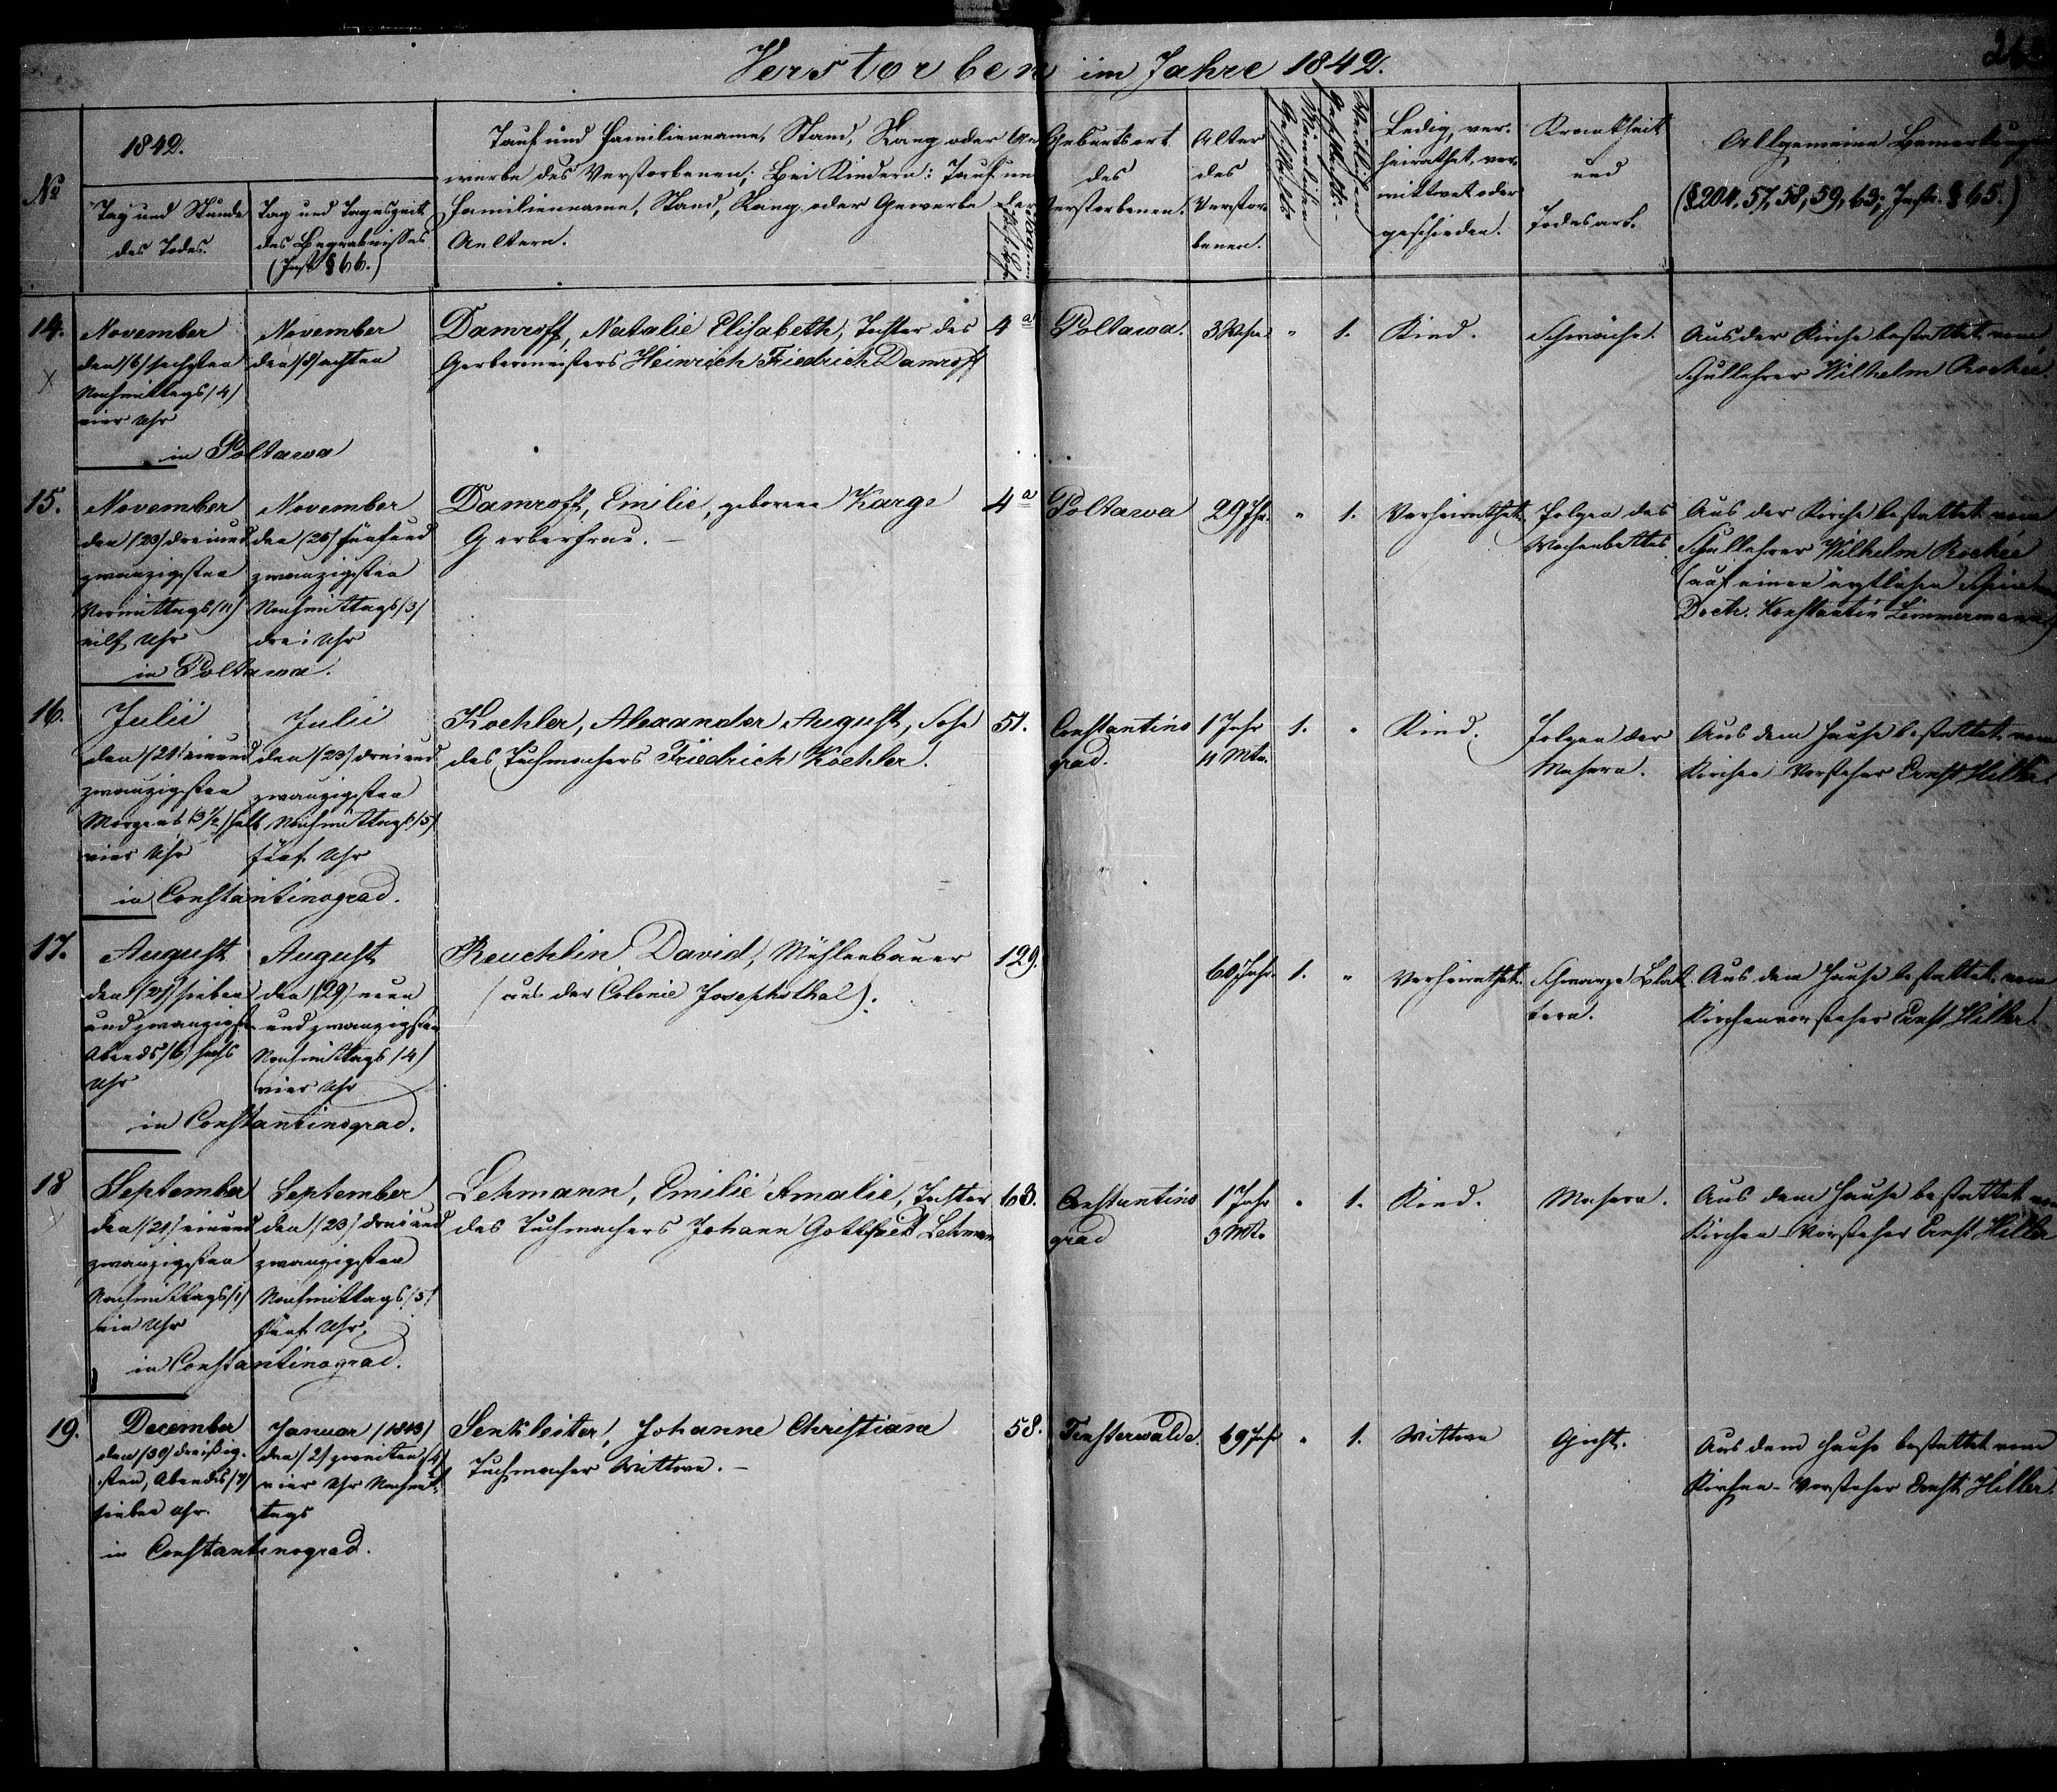 Verstorben im Jahre 1842.
No
1842.
Tag und Stunde
des Todes.
Tag und Tageszeit
des Begräbnisses
(Inst. § 66.)
Tauf und Familienname, Stand, Rang oder Ge
werbe des Verstorbenen; Bei Kindern: Tauf und
Familienname, Stand, Rang oder Gewerbe der
Aeltern.
Geburtsort
des
Verstorbenen.
Alter
des
Verstor-
benen.
Männlichen
Geschlechts
Weiblichen
Geschlechts
Ledig, ver-
heirathet, ver-
wittwet oder
geschieden.
Krankheit
und
Todesart.
Allgemeine Bemerkung
(§ 204. 57, 58, 59, 63; Instr. § 65.)
14.
November
den (6) sechsten
Nachmittags (4)
vier Uhr
November
den (8) achten
in Poltawa
Damroff, Natalie Elisabeth, Tochter des
Gerbermeisters Heinrich Friedrich Damroff
4a
Poltawa.
3 Wch.
"
1.
Kind.
Schwäche.
Aus der Kirche bestattet vom
Schullehrer Wilhelm Rochée.
15.
November
den (23) dreiund
zwanzigsten
Vormittags (11)
eilf Uhr
November
den (25) fünfund
zwanzigsten
Nachmittags (3)
drei Uhr
in Poltawa.
Damroff, Emilie, geborene Karge
Gerberfrau. –
4a
Poltawa
29 Jhr.
"
1.
Verheirathet.
Folgen des
Wochenbettes
Aus der Kirche bestattet vom
Schullehrer Wilhelm Rochée
(auf einen ärztlichen Schein
Doctr. Konstantin Limmermann)
16.
Julii
den (21) einund
zwanzigsten
Morgens (3 1/2) halb
vier Uhr
Julii
den (23) dreiund
zwanzigsten
Nachmittags (5)
fünf Uhr
in Constantinograd.
Koehler, Alexander August, Sohn
des Tuchmachers Friedrich Koehler.
51.
Constantino
grad.
1 Jahr
11 Mte.
1.
"
Kind.
Folgen der
Masern.
Aus dem Hause bestattet vom
Kirchen Vorsteher Ernst Hiller
17.
August
den (27) sieben
und zwanzigst.
Abends (6) sechs
Uhr
August
den (29) neun
und zwanzigsten
Nachmittags (4)
vier Uhr
in Constantinograd.
Reuchlin David, Mühlenbauer
(aus der Colonie Josephsthal).
129.
60 Jahr.
1.
"
Verheirathet.
Schwarze Blat-
tern.
Aus dem Hause bestattet vom
Kirchenvorsteher Ernst Hiller.
18
September
den (21) einund
zwanzigsten
Nachmittags (1)
ein Uhr
September
den (23) dreiund
zwanzigsten
Nachmittags (5)
fünf Uhr
in Constantinograd.
Lehmann, Emilie Amalie, Tochter
des Tuchmachers Johann Gottfried Lehmann
103.
Constantino
grad
1 Jahr
3 Mte
"
1.
Kind.
Masern.
Aus dem Hause bestattet vom
Kirchen-Vorsteher Ernst Hiller
19.
December
den (30) dreißig-
sten, Abends (7)
sieben Uhr.
Januar (1843)
den (2) zweiten (4)
vier Uhr Nachmit-
tags
in Constantinograd.
Senkleiter, Johanne Christiane
Tuchmacher Wittwe. –
58.
Finsterwalde.
69 Jahr
"
1.
Wittwe
Gicht.
Aus dem Hause bestattet vom
Kirchen-Vorsteher Ernst Hiller.